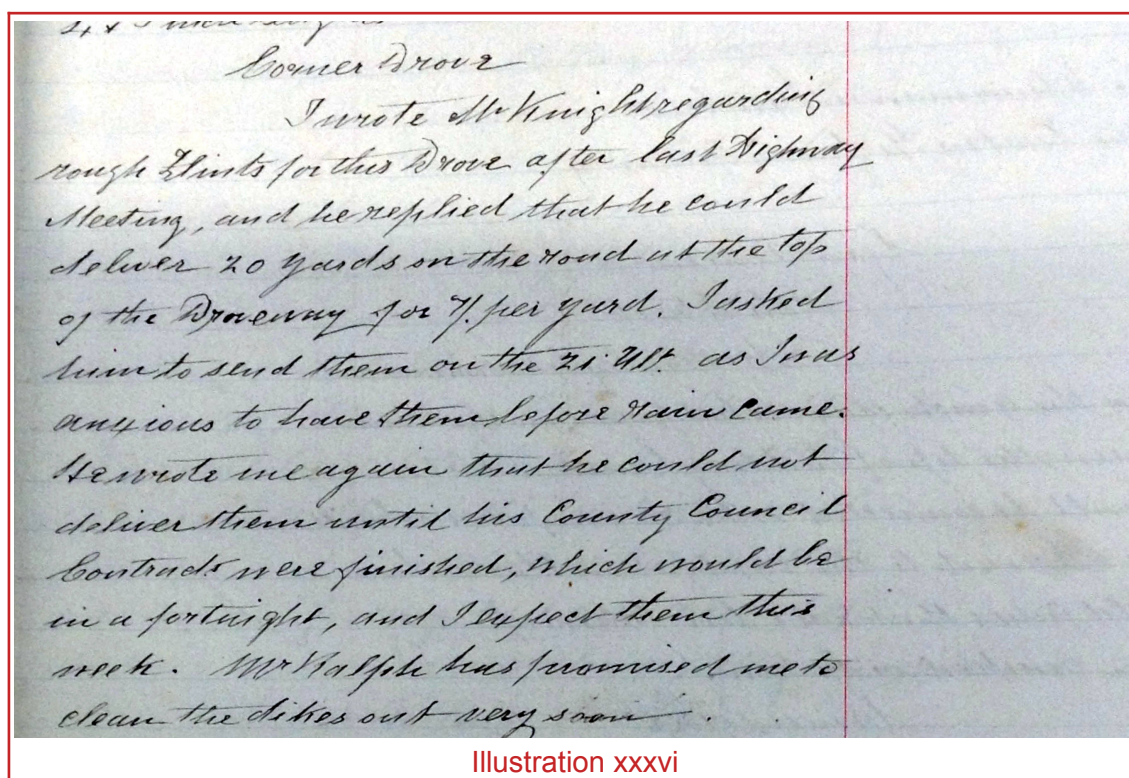 Corner Drove
I wrote Mr Knight regarding
rough Flints for this Drove after last Highway
Meeting, and he replied that he could
deliver 20 yards on the road at the top
of the Droveway for 7/. per yard. I asked
him to send them on the 21. Ult. as I was
anxious to have them before rain came.
He wrote me again that he could not
deliver them until his County Council
Contracts were finished, which would be
in a fortnight, and I expect them this
week. Mr Ralph has promised me to
clean the dikes out very soon.
Illustration xxxvi